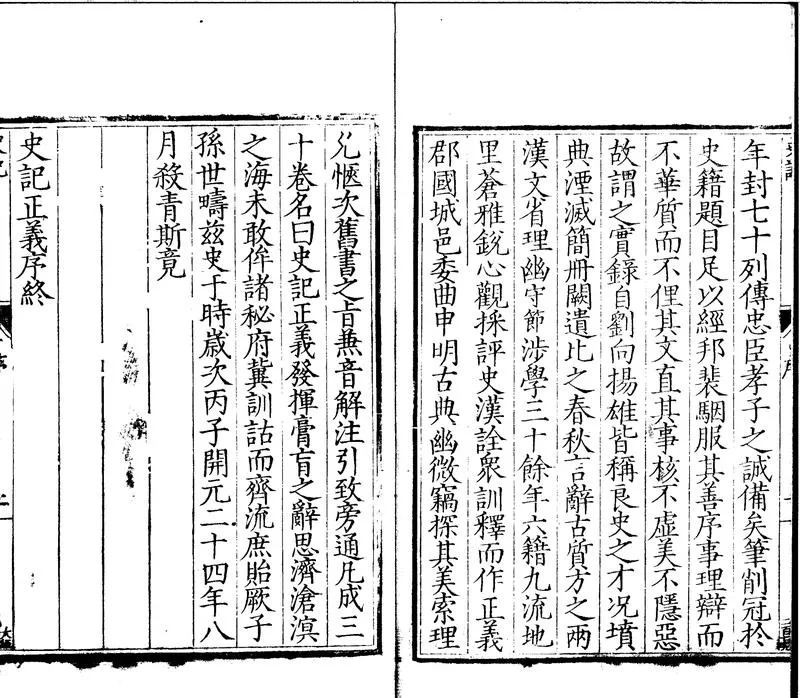 年封七十列傳忠臣孝子之誠備矣筆削冠扵
史籍題目足以經邦裴駰服其善序事理辯而
不華質而不俚其文直其事核不虛美不隱惡
故謂之實錄自劉向揚雄皆稱良史之才况墳
典湮滅簡冊闕遺比之春秋言辭古質方之兩
漢文省理幽守節涉學三十餘年六籍九流地
里蒼雅銳心觀採評史漢詮衆訓釋而作正義
郡國城邑委曲申明古典幽微竊探其美索理
允愜次舊書之旨兼音解注引致旁通凡成三
十卷名曰史記正義發揮膏肓之辭思濟滄溟
之海未敢侔諸秘府冀訓詁而齊流庶貽厥子
孫世疇茲史于時歲次丙子開元二十四年八
月殺青斯竟
史記正義序終